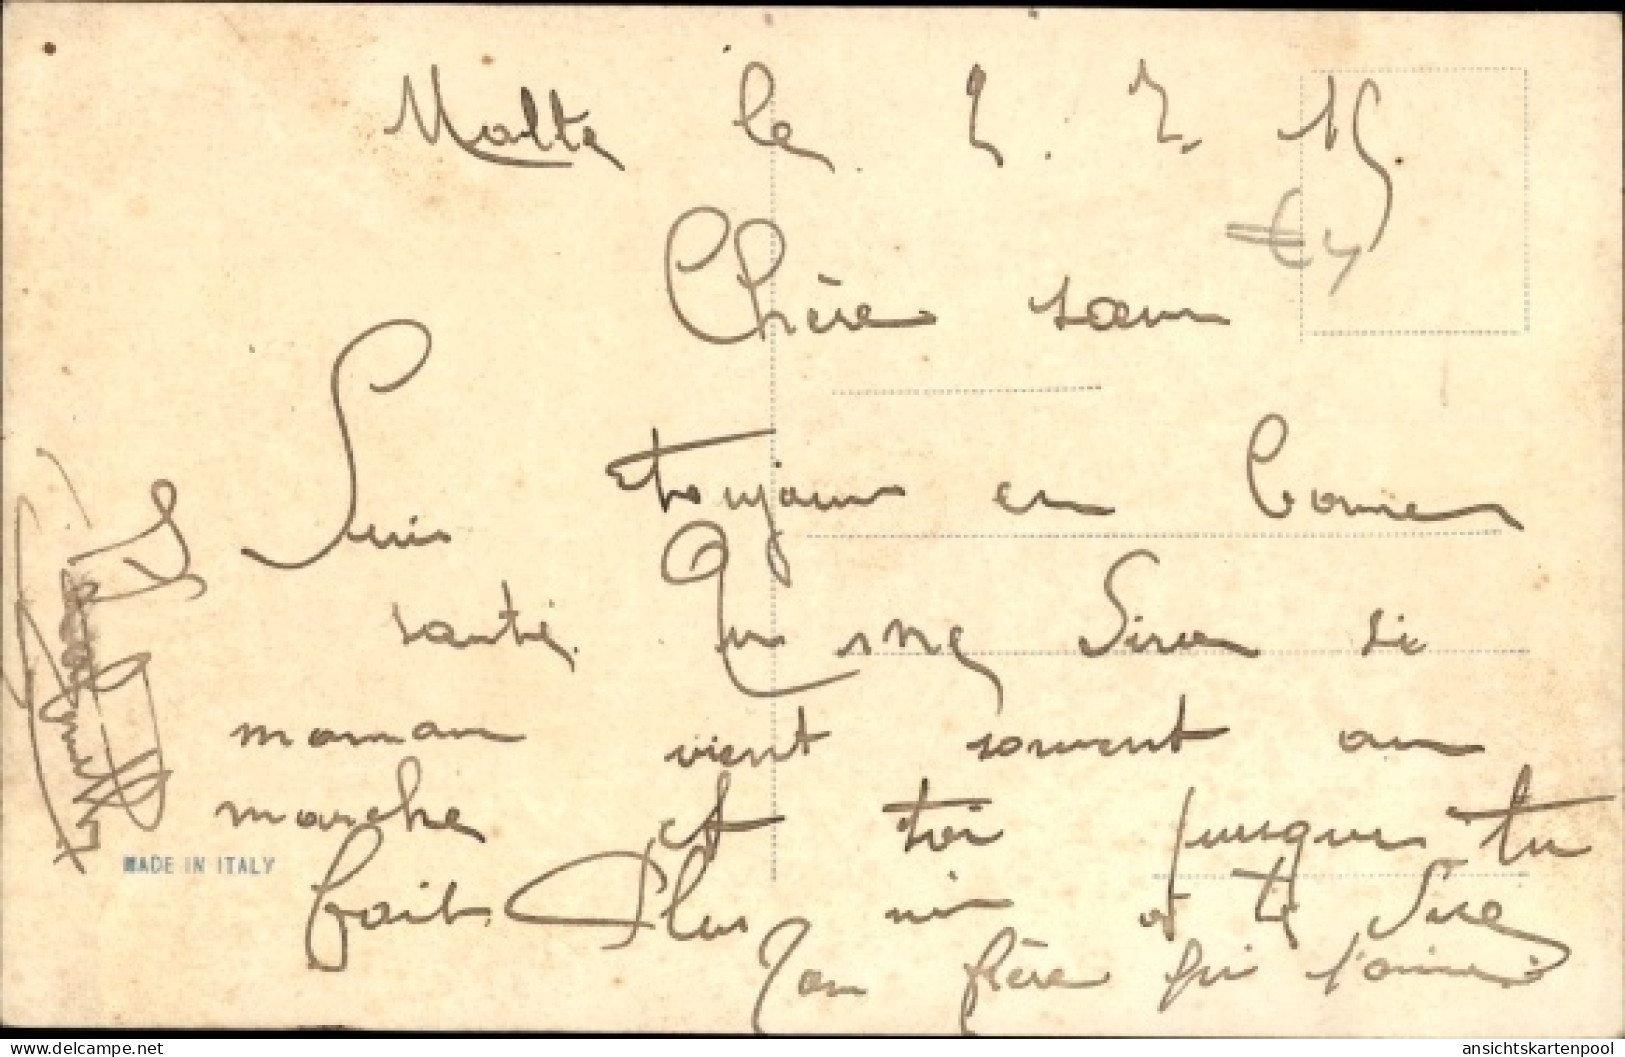 Malte le 2. 7. 15.
€4
Chère sœur
Suis toujours en bonne
santé. Tu me diras si
maman vient souvent au
marche et toi jusque tu
fait. Plus rien a te dire
Ton frère qui t'aime
MADE IN ITALY
https://www.delcampe.net
ansichtskartenpool